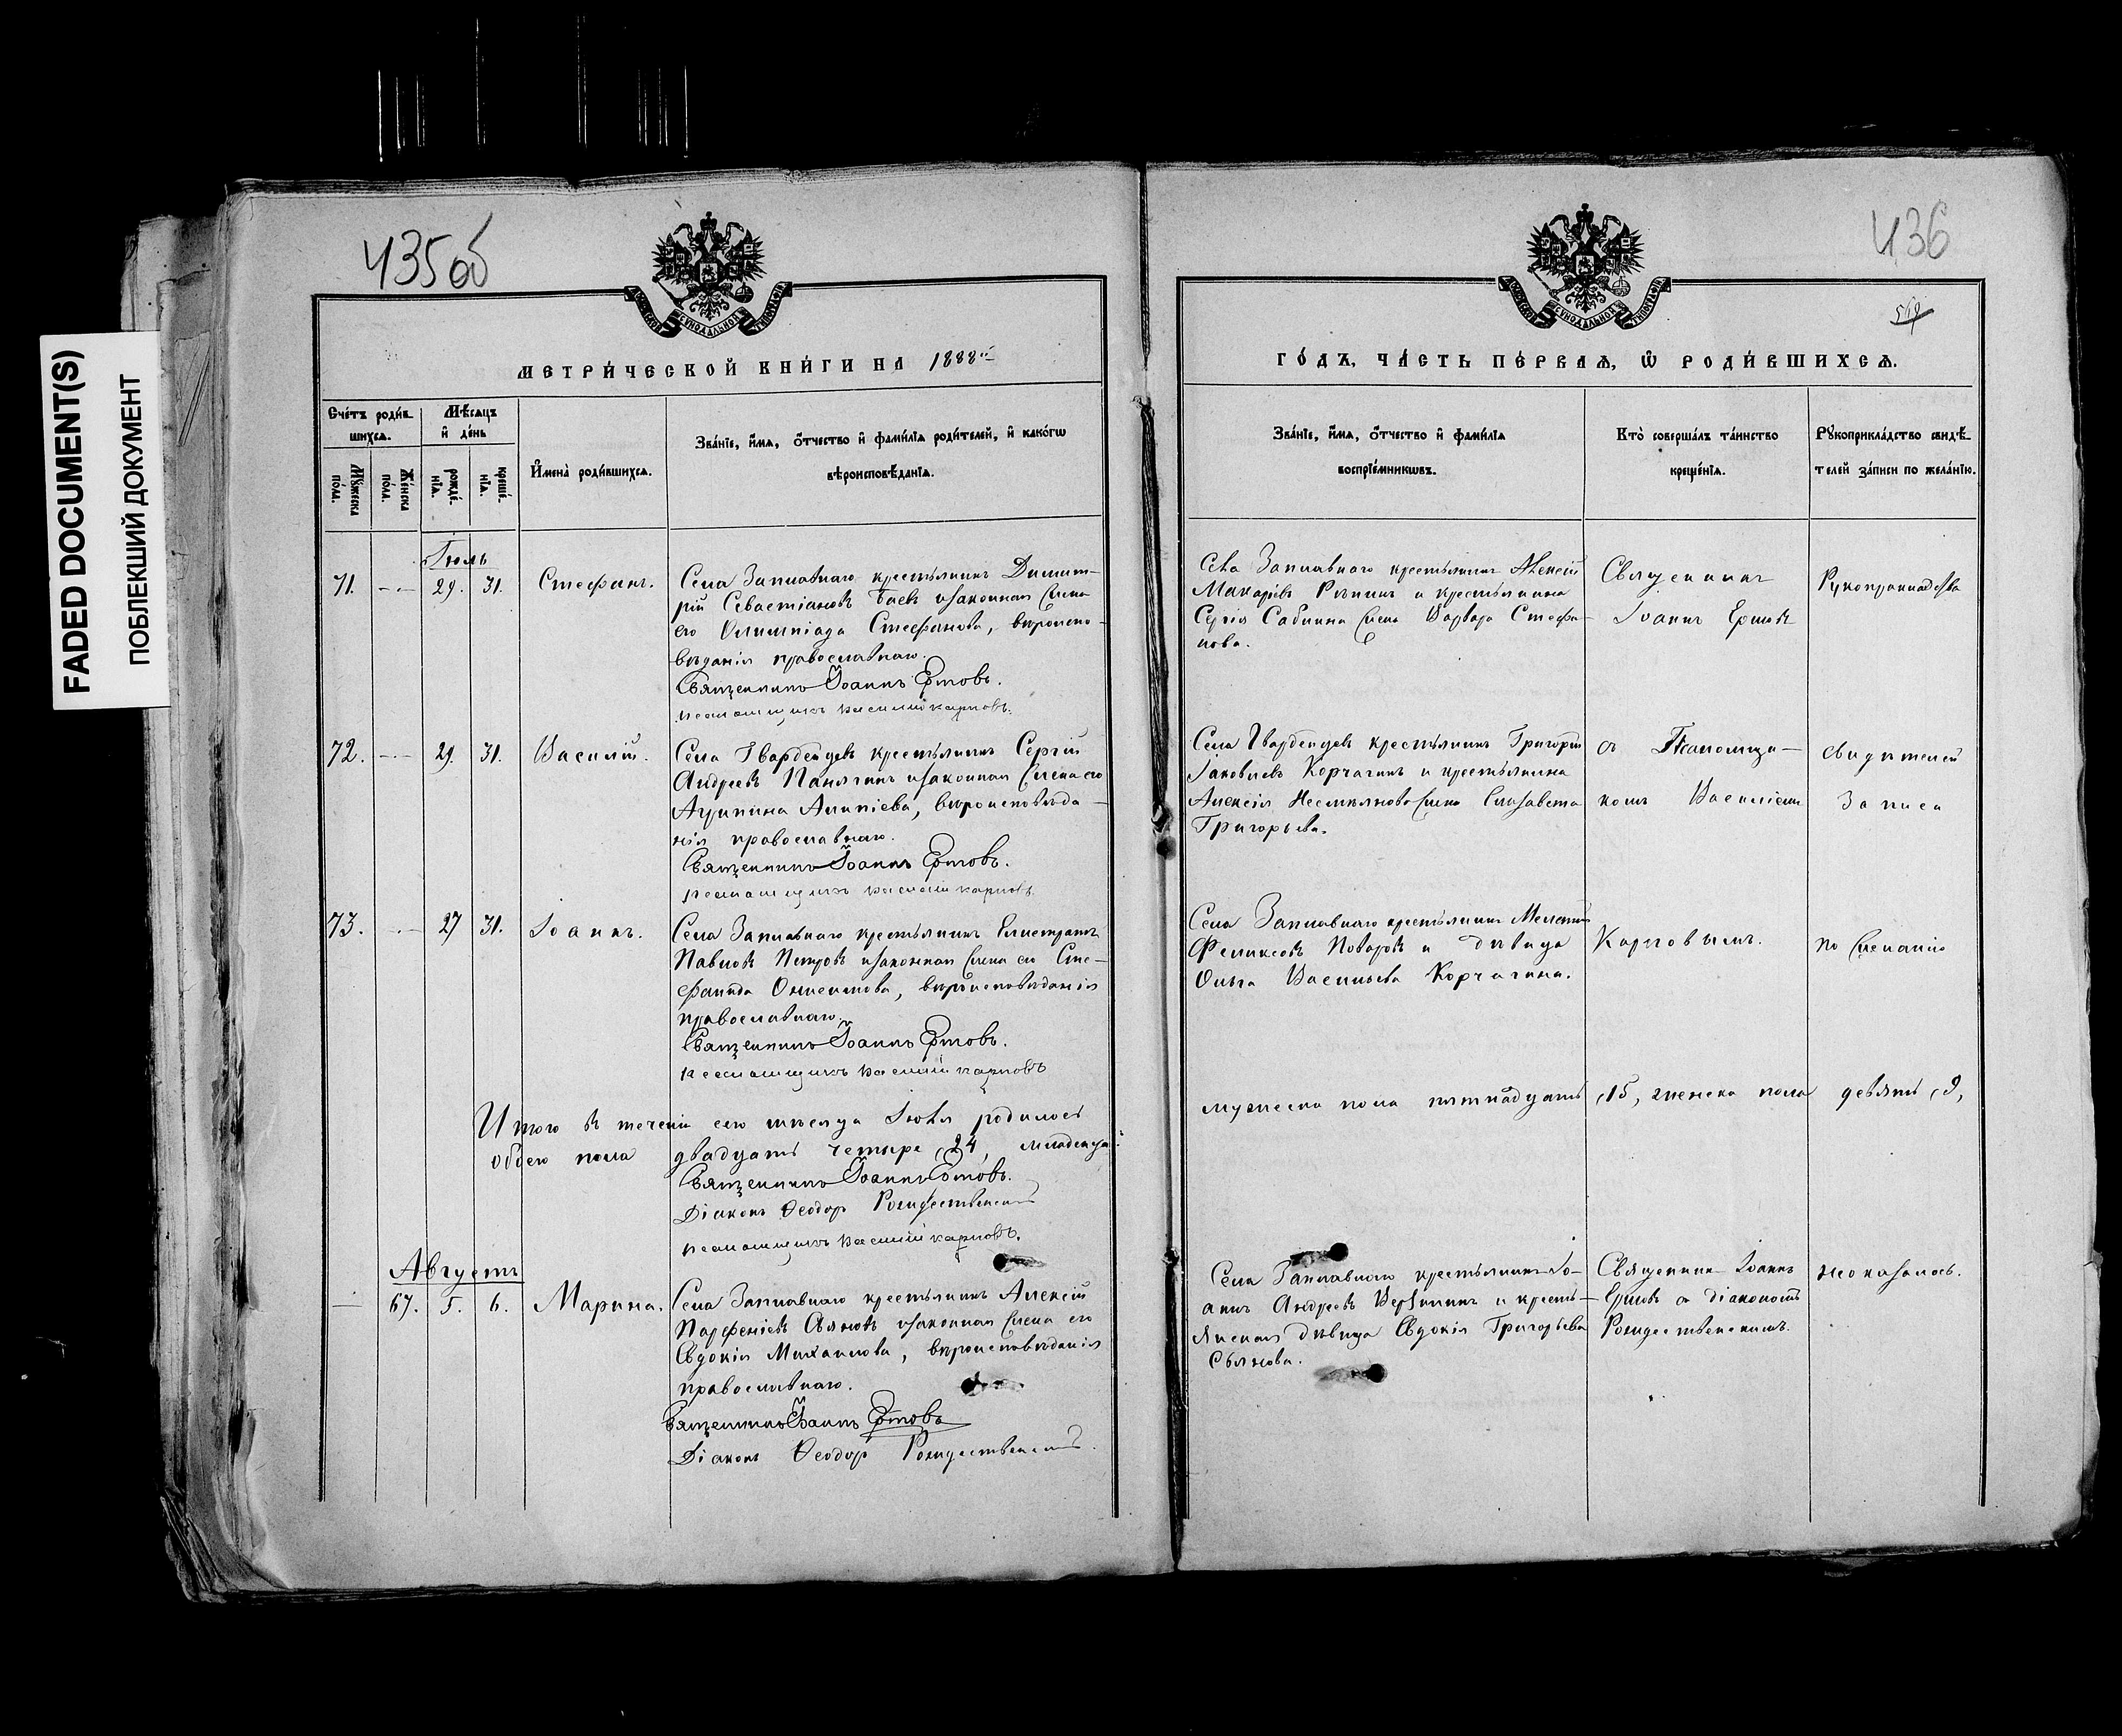 FADED DOCUMENT(S)
ПОБЛЕКШИЙ ДОКУМЕНТ
435об
МЕТРИ́ЧЕСКОЙ КНИ́ГИ НА 1888й
Счётъ роди́в-
шихся.
Мѣ́сяцъ
и҆ де́нь
Му́жеска
по́ла.
Же́нска
по́ла.
рожде́-
нїѧ.
креще́-
нїѧ.
И҆мена̀ роди́вшихся.
Зва́нїе, и҆́мя, ѻ҆́тчество и҆ фами́лїя роди́телей, и҆ како́гѡ
вѣроисповѣ́данїя.
Іюль
71. -.- 29. 31. Стефанъ.
Села Заплавнаго крестьянинъ Димит-
рій Севастіановъ Баевъ и законная жена
его Олимпіада Стефанова, вѣроиспо-
вѣданія православнаго.
Священникъ Іоаннъ Ершовъ.
псаломщикъ василій карповъ.
72. -.- 29. 31. Василій.
Села Гвардейцевъ крестьянинъ Сергій
Андреевъ и законная жена его
Агрипина Алипіева, вѣроисповѣда-
нія православнаго.
Священникъ Іоаннъ Ершовъ.
псаломщикъ василій карповъ
73. -.- 27 31. Іоаннъ.
Села Заплавнаго крестьянинъ Калистратъ
Павловъ Петровъ и законная жена его Сте-
фанида Онисимова, вѣроисповѣданія
православнаго.
Священникъ Іоаннъ Ершовъ.
псаломщикъ василій карповъ
Итого въ теченіи сего мѣсяца Іюля родилось
обоего пола двадцать четыре, 24, младенца.
Священникъ Іоаннъ Ершовъ.
Діаконъ Ѳеодоръ Рождественскій
псаломщикъ василій карповъ.
Августъ
— 67. 5. 6. Марина.
Села Заплавнаго крестьянинъ Алексій
Парфеніевъ и законная жена его
Евдокія Михаилова, вѣроисповѣданія
православнаго.
Священникъ Іоаннъ Ершовъ
Діаконъ Ѳеодоръ Рождественскій.
436
569
ГО́ДЪ, ЧА́СТЬ ПЕ́РВАЯ, Ѡ҆ РОДИ́ВШИХСЯ.
Зва́нїе, и҆́мя, ѻ҆́тчество и҆ фами́лїя
воспрїе́мникѡвъ.
Кто̀ соверша́лъ та́инство
креще́нїя.
Рꙋкоприкла́дство свидѣ́-
телей за́писи по жела́нїю.
Села Заплавнаго крестьянинъ Алексій
Макаріевъ Рѣпинъ и крестьянина
Сергія Сабинина жена Варвара Стефа-
нова.
Священникъ
Іоаннъ Ершовъ
Рукоприкладства
Села Гвардейцевъ крестьянинъ Григорій
Іаковлевъ Корчагинъ и крестьянина
Алексія жена Елизавета
Григорьева.
съ Псаломщи-
комъ Василіемъ
свидѣтелей
записи
Села Заплавнаго крестьянинъ Мелетій
Феликсовъ Поваровъ и дѣвица
Ольга Васильева Корчагина.
Карповымъ.
по желанію
мужеска пола пятнадцать, 15, женска пола девять, 9,
Села Заплавнаго крестьянинъ Іо-
аннъ Андреевъ и кресть-
янская дѣвица Евдокія Григорьева
Священникъ Іоаннъ
Ершовъ съ діакономъ
Рождественскимъ.
не оказалось.